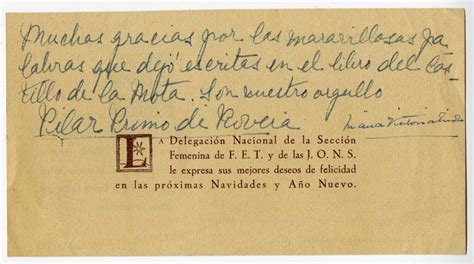 Muchas gracias por las maravillosas pa
labras que dejó escritas en el libro del Cas-
tillo de la Mota. Son nuestro orgullo
Pilar Primo de Rivera
LA Delegación Nacional de la Sección
Femenina de F. E. T. y de las J. O. N. S.
le expresa sus mejores deseos de felicidad
en las próximas Navidades y Año Nuevo.